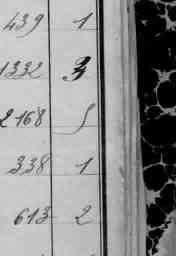 439 1
1332 3
2168 5
338 1
613 2